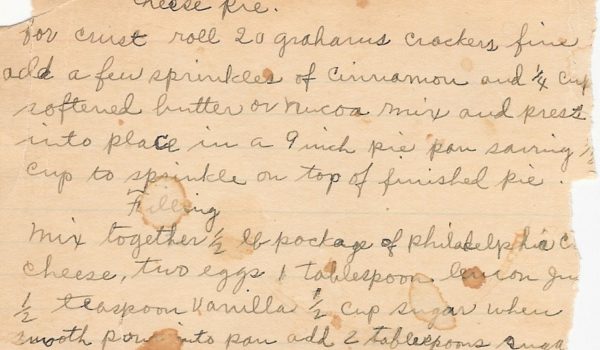 Cheese Pie.
For crust roll 20 grahams crackers fine
add a few sprinkles of cinnamon and 1/4 cup
softened butter or Nucoa mix and press
into place in a 9 inch pie pan saving
cup to sprinkle on top of finished pie.
Filling
Mix together 1/2 lb package of Philadelphia C
cheese, two eggs 1 tablespoon lemon Ju
1/2 teaspoon Vanilla 1/2 cup sugar when
smooth pour into pan add 2 tablespoons suga